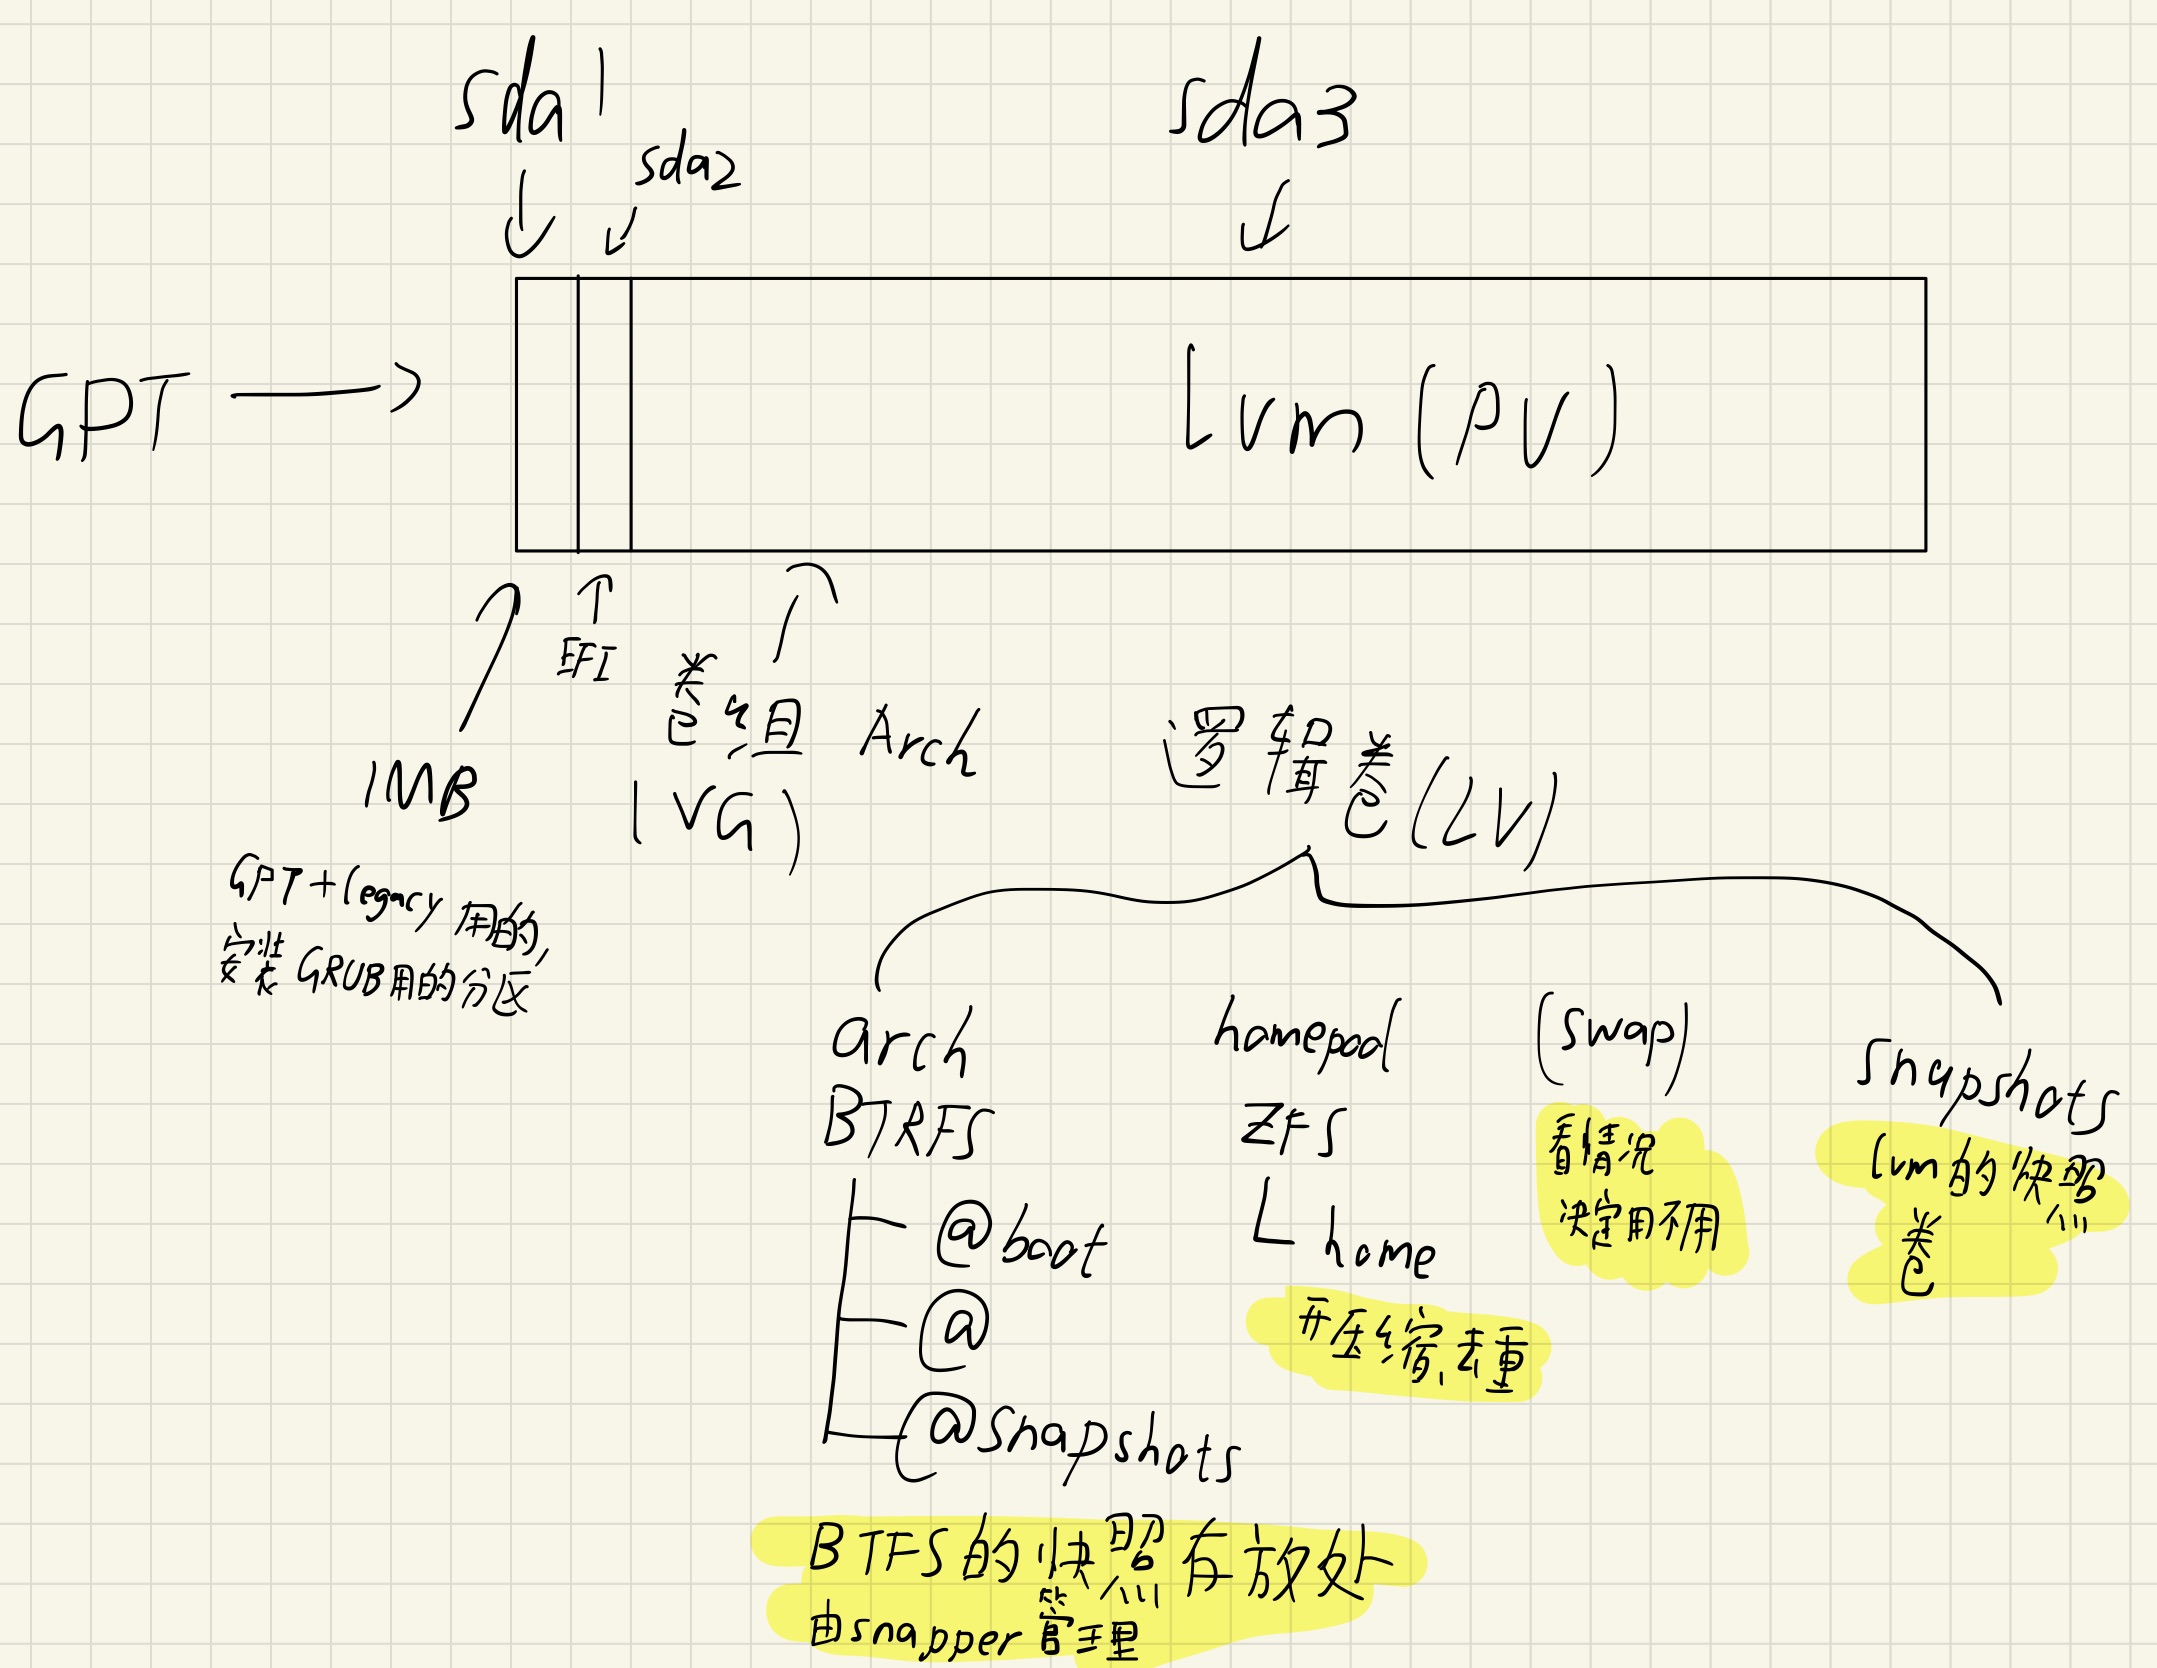 sda1
sda2
sda3
GPT
Lvm (PV)
EFI
1MB
GPT+legacy 用的,
安装GRUB用的分区
卷组 Arch
(VG)
逻辑卷(LV)
arch
BTRFS
@boot
@
@snapshots
BTFS的快照存放处
由snapper管理
homepool
ZFS
home
开压缩、去重
(swap)
看情况
决定用不用
snapshots
lvm的快照
卷